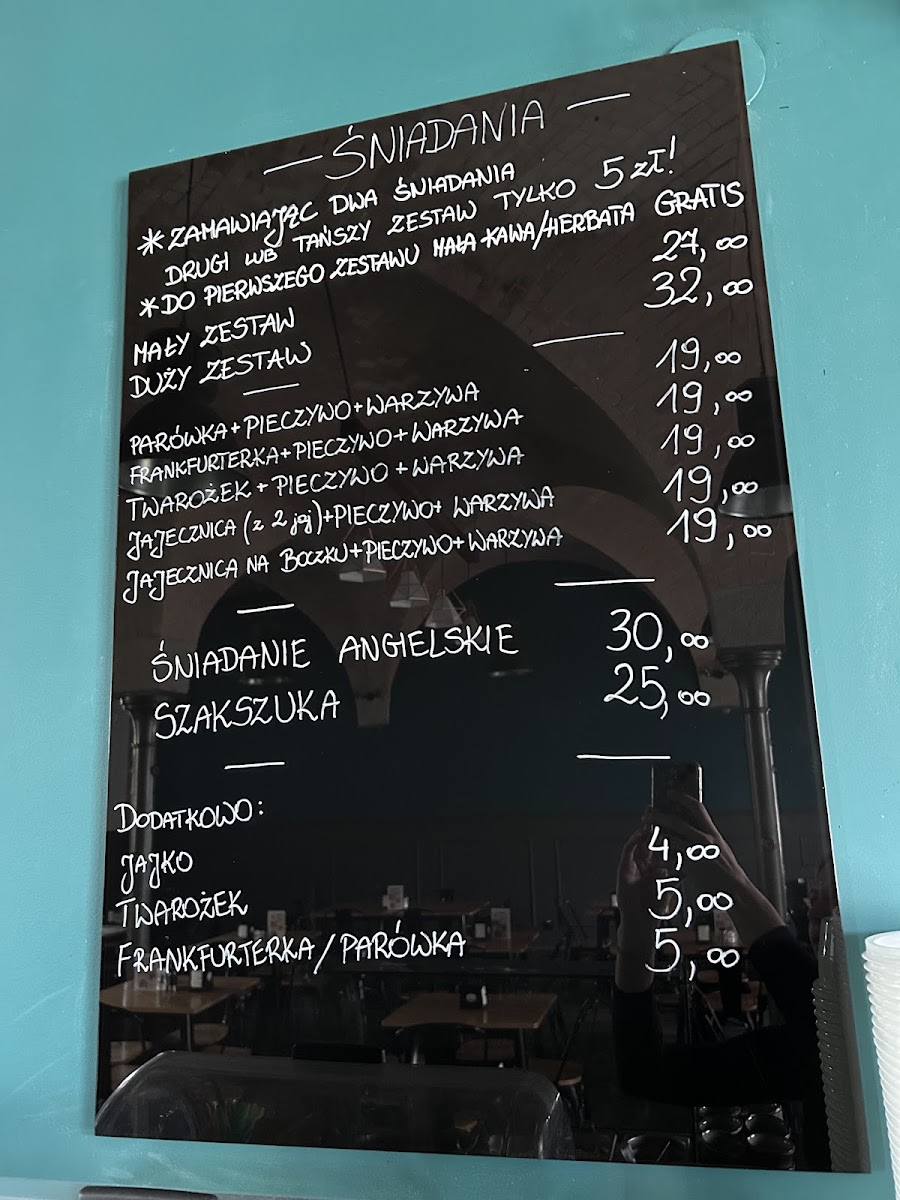 — ŚNIADANIA —
* ZAMAWIAJĄC DWA ŚNIADANIA
DRUGI LUB TAŃSZY ZESTAW TYLKO 5 zł!
* DO PIERWSZEGO ZESTAWU MAŁA KAWA/HERBATA GRATIS
MAŁY ZESTAW 27,00
DUŻY ZESTAW 32,00
PARÓWKA+PIECZYWO+WARZYWA 19,00
FRANKFURTERKA+PIECZYWO+WARZYWA 19,00
TWAROŻEK+PIECZYWO+WARZYWA 19,00
JAJECZNICA (z 2 jaj)+PIECZYWO+WARZYWA 19,00
JAJECZNICA NA BOCZKU+PIECZYWO+WARZYWA 19,00
ŚNIADANIE ANGIELSKIE 30,00
SZAKSZUKA 25,00
DODATKOWO:
JAJKO 4,00
TWAROŻEK 5,00
FRANKFURTERKA/PARÓWKA 5,00